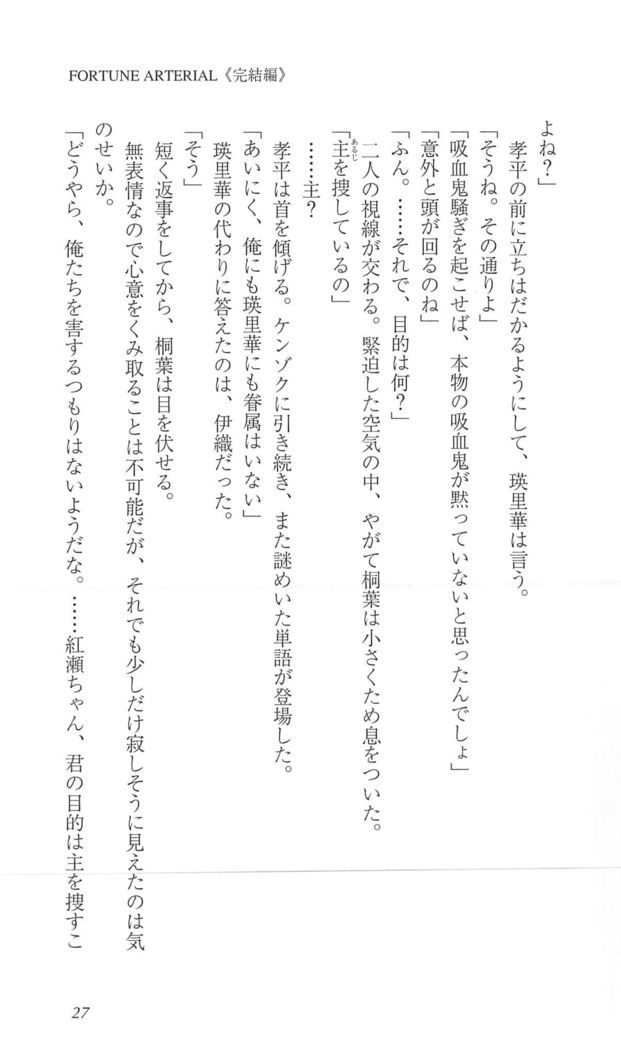 FORTUNE ARTERIAL《完結編》
よね？」
　孝平の前に立ちはだかるようにして、瑛里華は言う。
「そうね。その通りよ」
「吸血鬼騒ぎを起こせば、本物の吸血鬼が黙っていないと思ったんでしょ」
「意外と頭が回るのね」
「ふん。……それで、目的は何？」
　二人の視線が交わる。緊迫した空気の中、やがて桐葉は小さくため息をついた。
「主を捜しているの」
あるじ
　……主？
　孝平は首を傾げる。ケンゾクに引き続き、また謎めいた単語が登場した。
「あいにく、俺にも瑛里華にも眷属はいない」
　瑛里華の代わりに答えたのは、伊織だった。
「そう」
　短く返事をしてから、桐葉は目を伏せる。
　無表情なので心意をくみ取ることは不可能だが、それでも少しだけ寂しそうに見えたのは気
のせいか。
「どうやら、俺たちを害するつもりはないようだな。……紅瀬ちゃん、君の目的は主を捜すこ
27